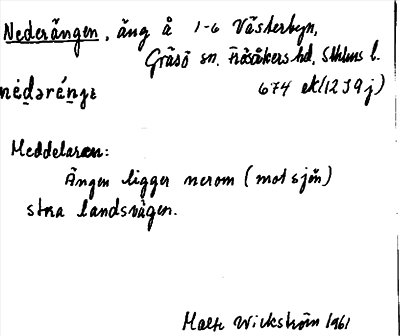 Nederängen, äng å 1-6 Västerbyn,
Gräsö sn. Frösåkers hd, Sthlms l.
nèdǝréngɛ 674 ek (12J9j)
Meddelaren:
Ängen ligger nerom (mot sjön)
stora landsvägen.
Malte Wickström 1961